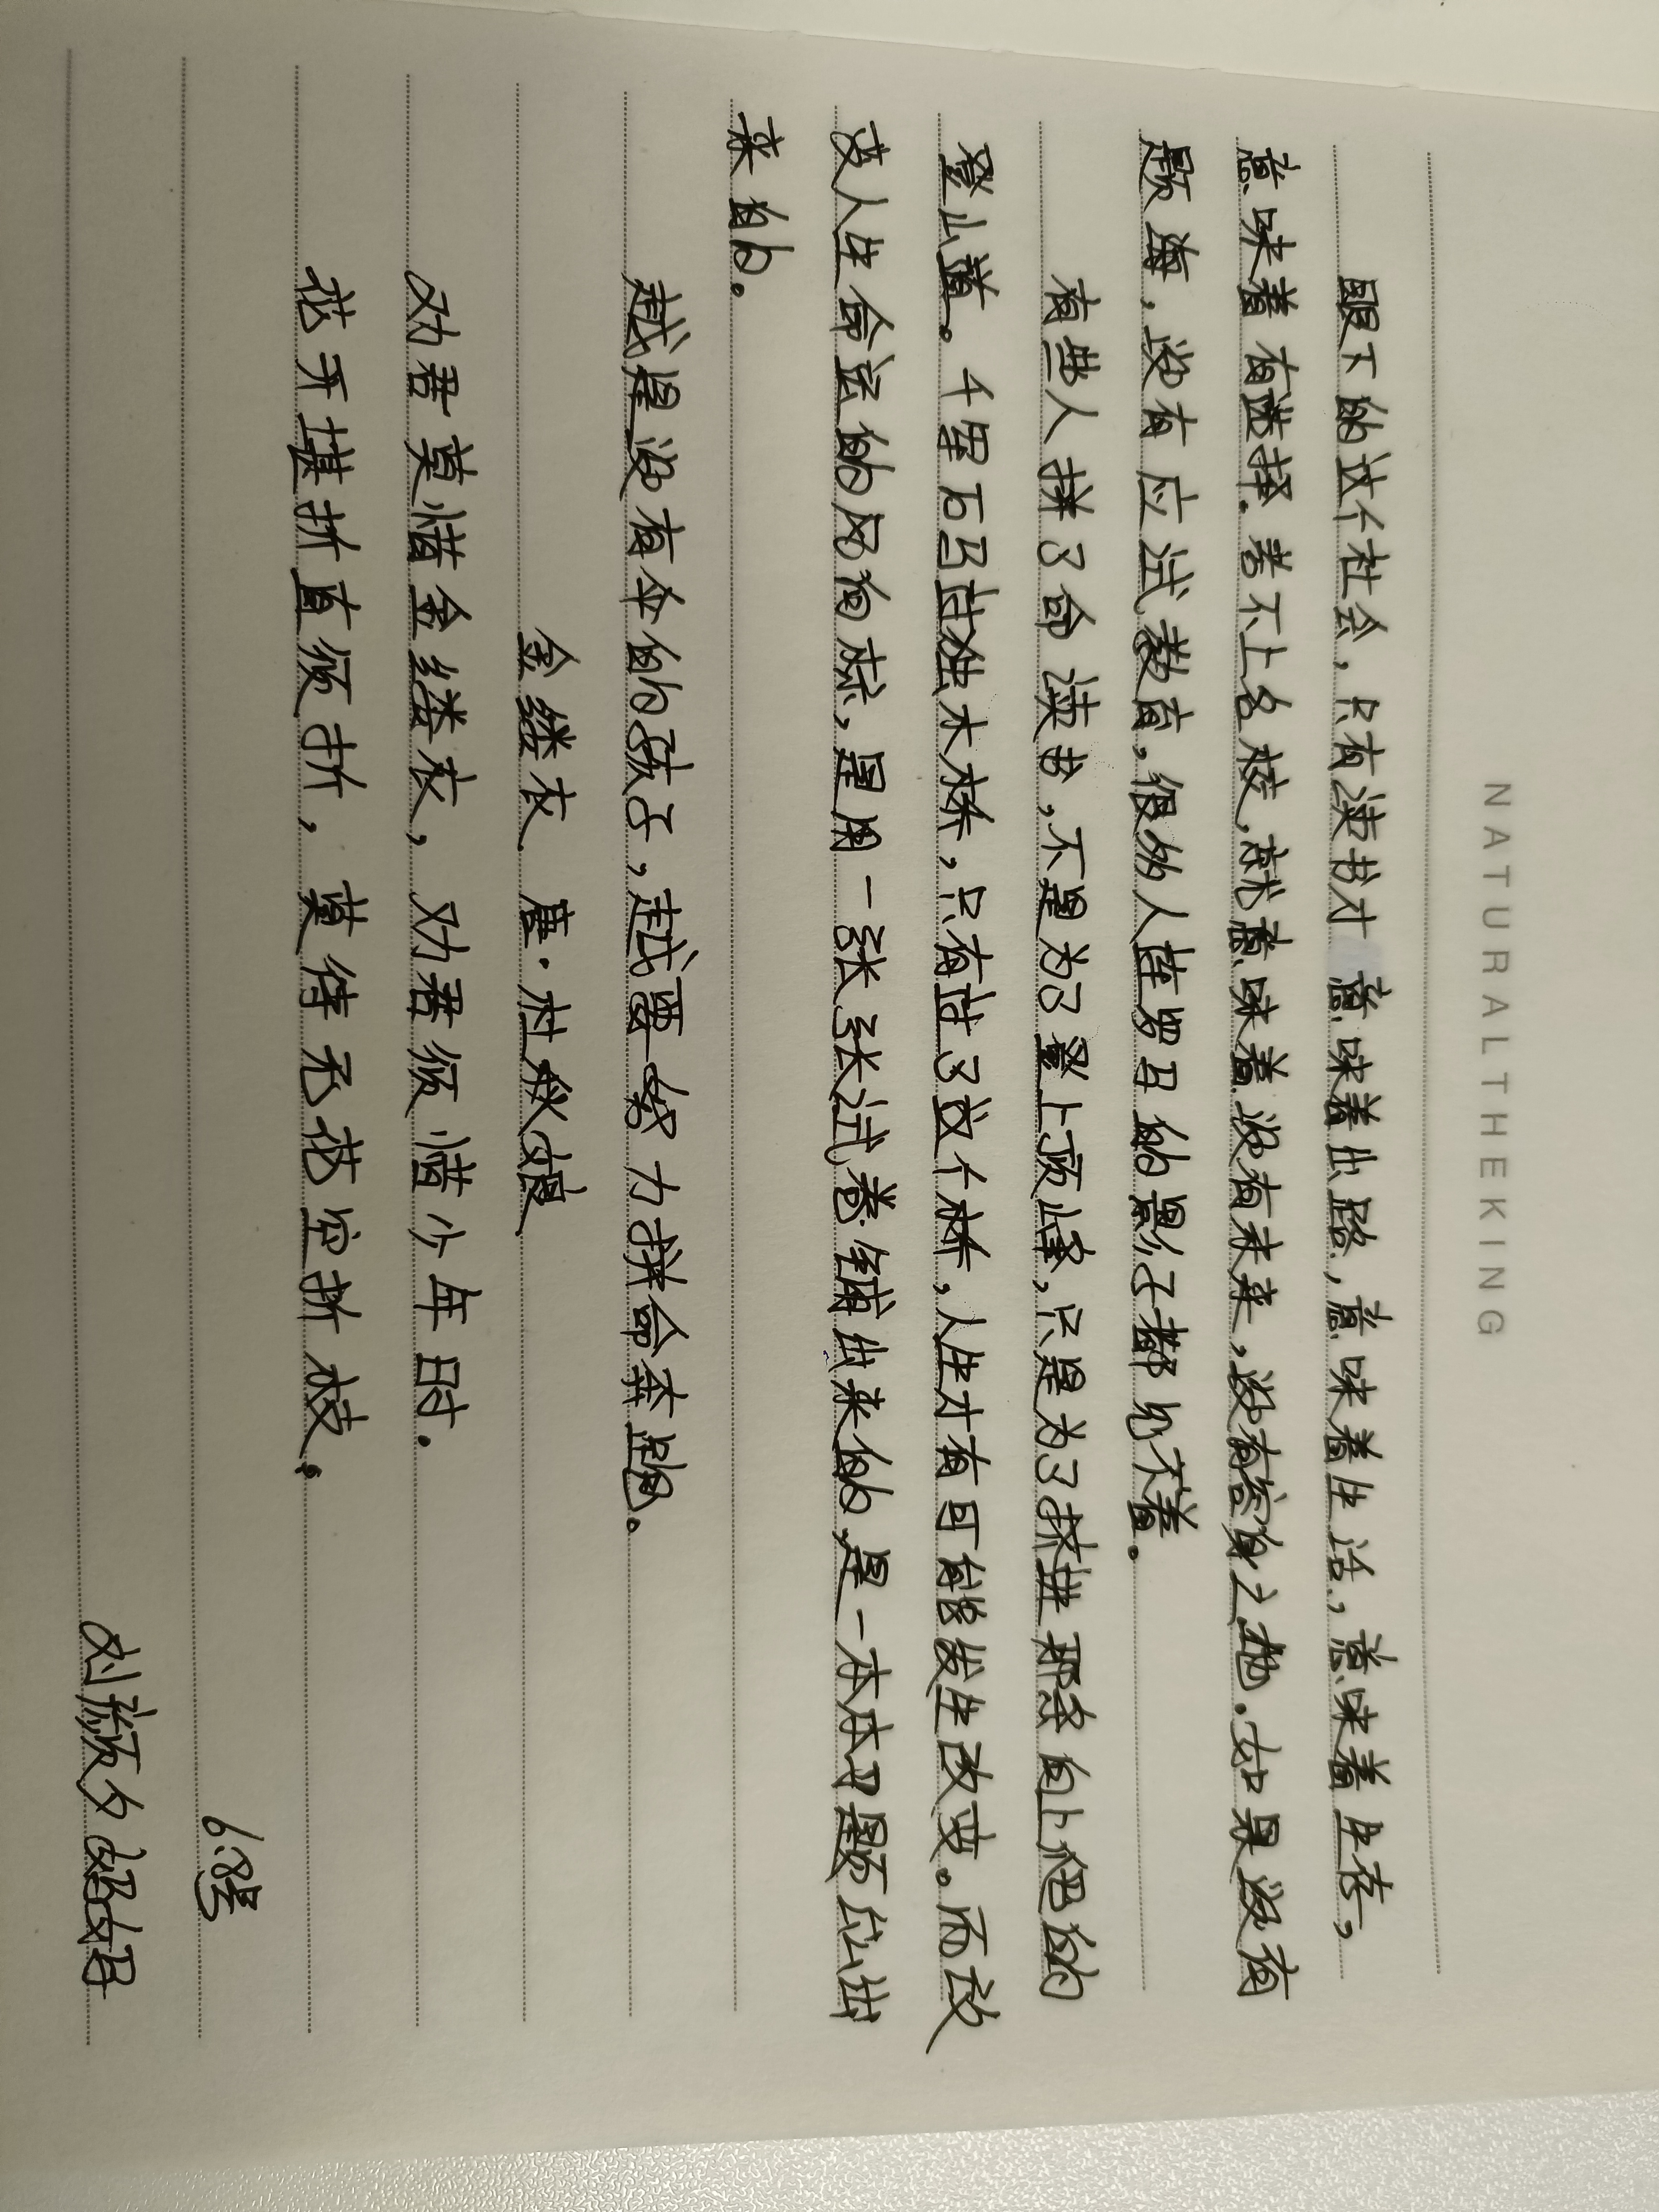 NATURALTHEKING
眼下的这个社会，只有读书才意味着出路，意味着生活，意味着生存，
意味着有选择. 考不上名校，就意味着没有未来，没有容身之地. 如果没有
题海，没有应试教育，很多人连罗马的影子都见不着。
有些人拼了命读书，不是为了登上顶峰，只是为了挤进那条向上爬的
登山道。千军万马过独木桥，只有过了这个桥，人生才有可能发生改变。而改
变人生命运的风向标，是用一张张试卷铺出来的，是一本本习题示出
来的。
越是没有伞的孩子，越要努力拼命奔跑。
金缕衣 唐·杜秋娘
劝君莫惜金缕衣，劝君须惜少年时.
花开堪折直须折，莫待无花空折枝.
6.8号
刘颜夕